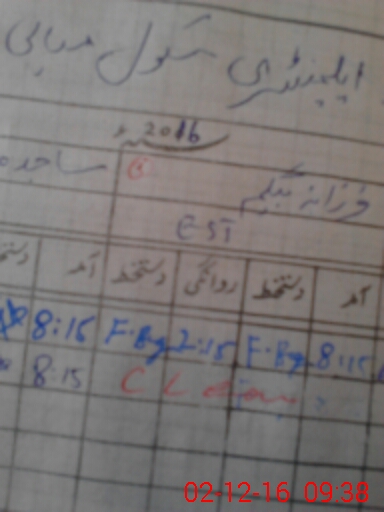 ایلیمنٹری سکول میانی
2016ء
فرزانہ بیگم ساجدہ
EST
آمد دستخط روانگی دستخط آمد
8:15 F.Bg 2:15 F.Bg 8:15
C L 8:15
02-12-16 09:38